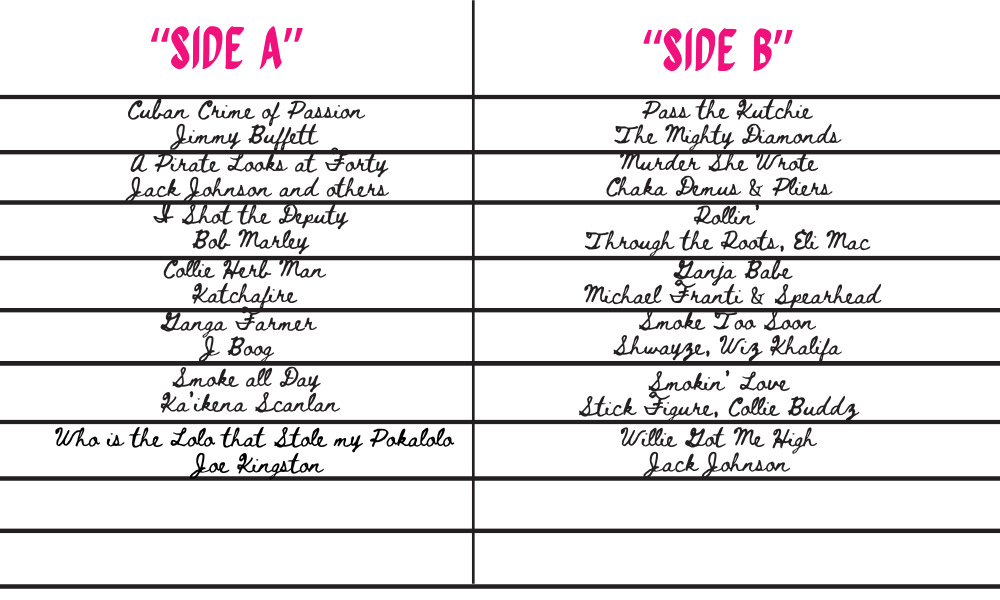 “SIDE A”
Cuban Crime of Passion
Jimmy Buffett
A Pirate Looks at Forty
Jack Johnson and others
I Shot the Deputy
Bob Marley
Collie Herb Man
Katchafire
Ganga Farmer
J Boog
Smoke all Day
Ka'ikena Scanlan
Who is the Lolo that Stole my Pokalolo
Joe Kingston
“SIDE B”
Pass the Kutchie
The Mighty Diamonds
Murder She Wrote
Chaka Demus & Pliers
Rollin'
Through the Roots, Eli Mac
Ganja Babe
Michael Franti & Spearhead
Smoke Too Soon
Shwayze, Wiz Khalifa
Smokin' Love
Stick Figure, Collie Buddz
Willie Got Me High
Jack Johnson